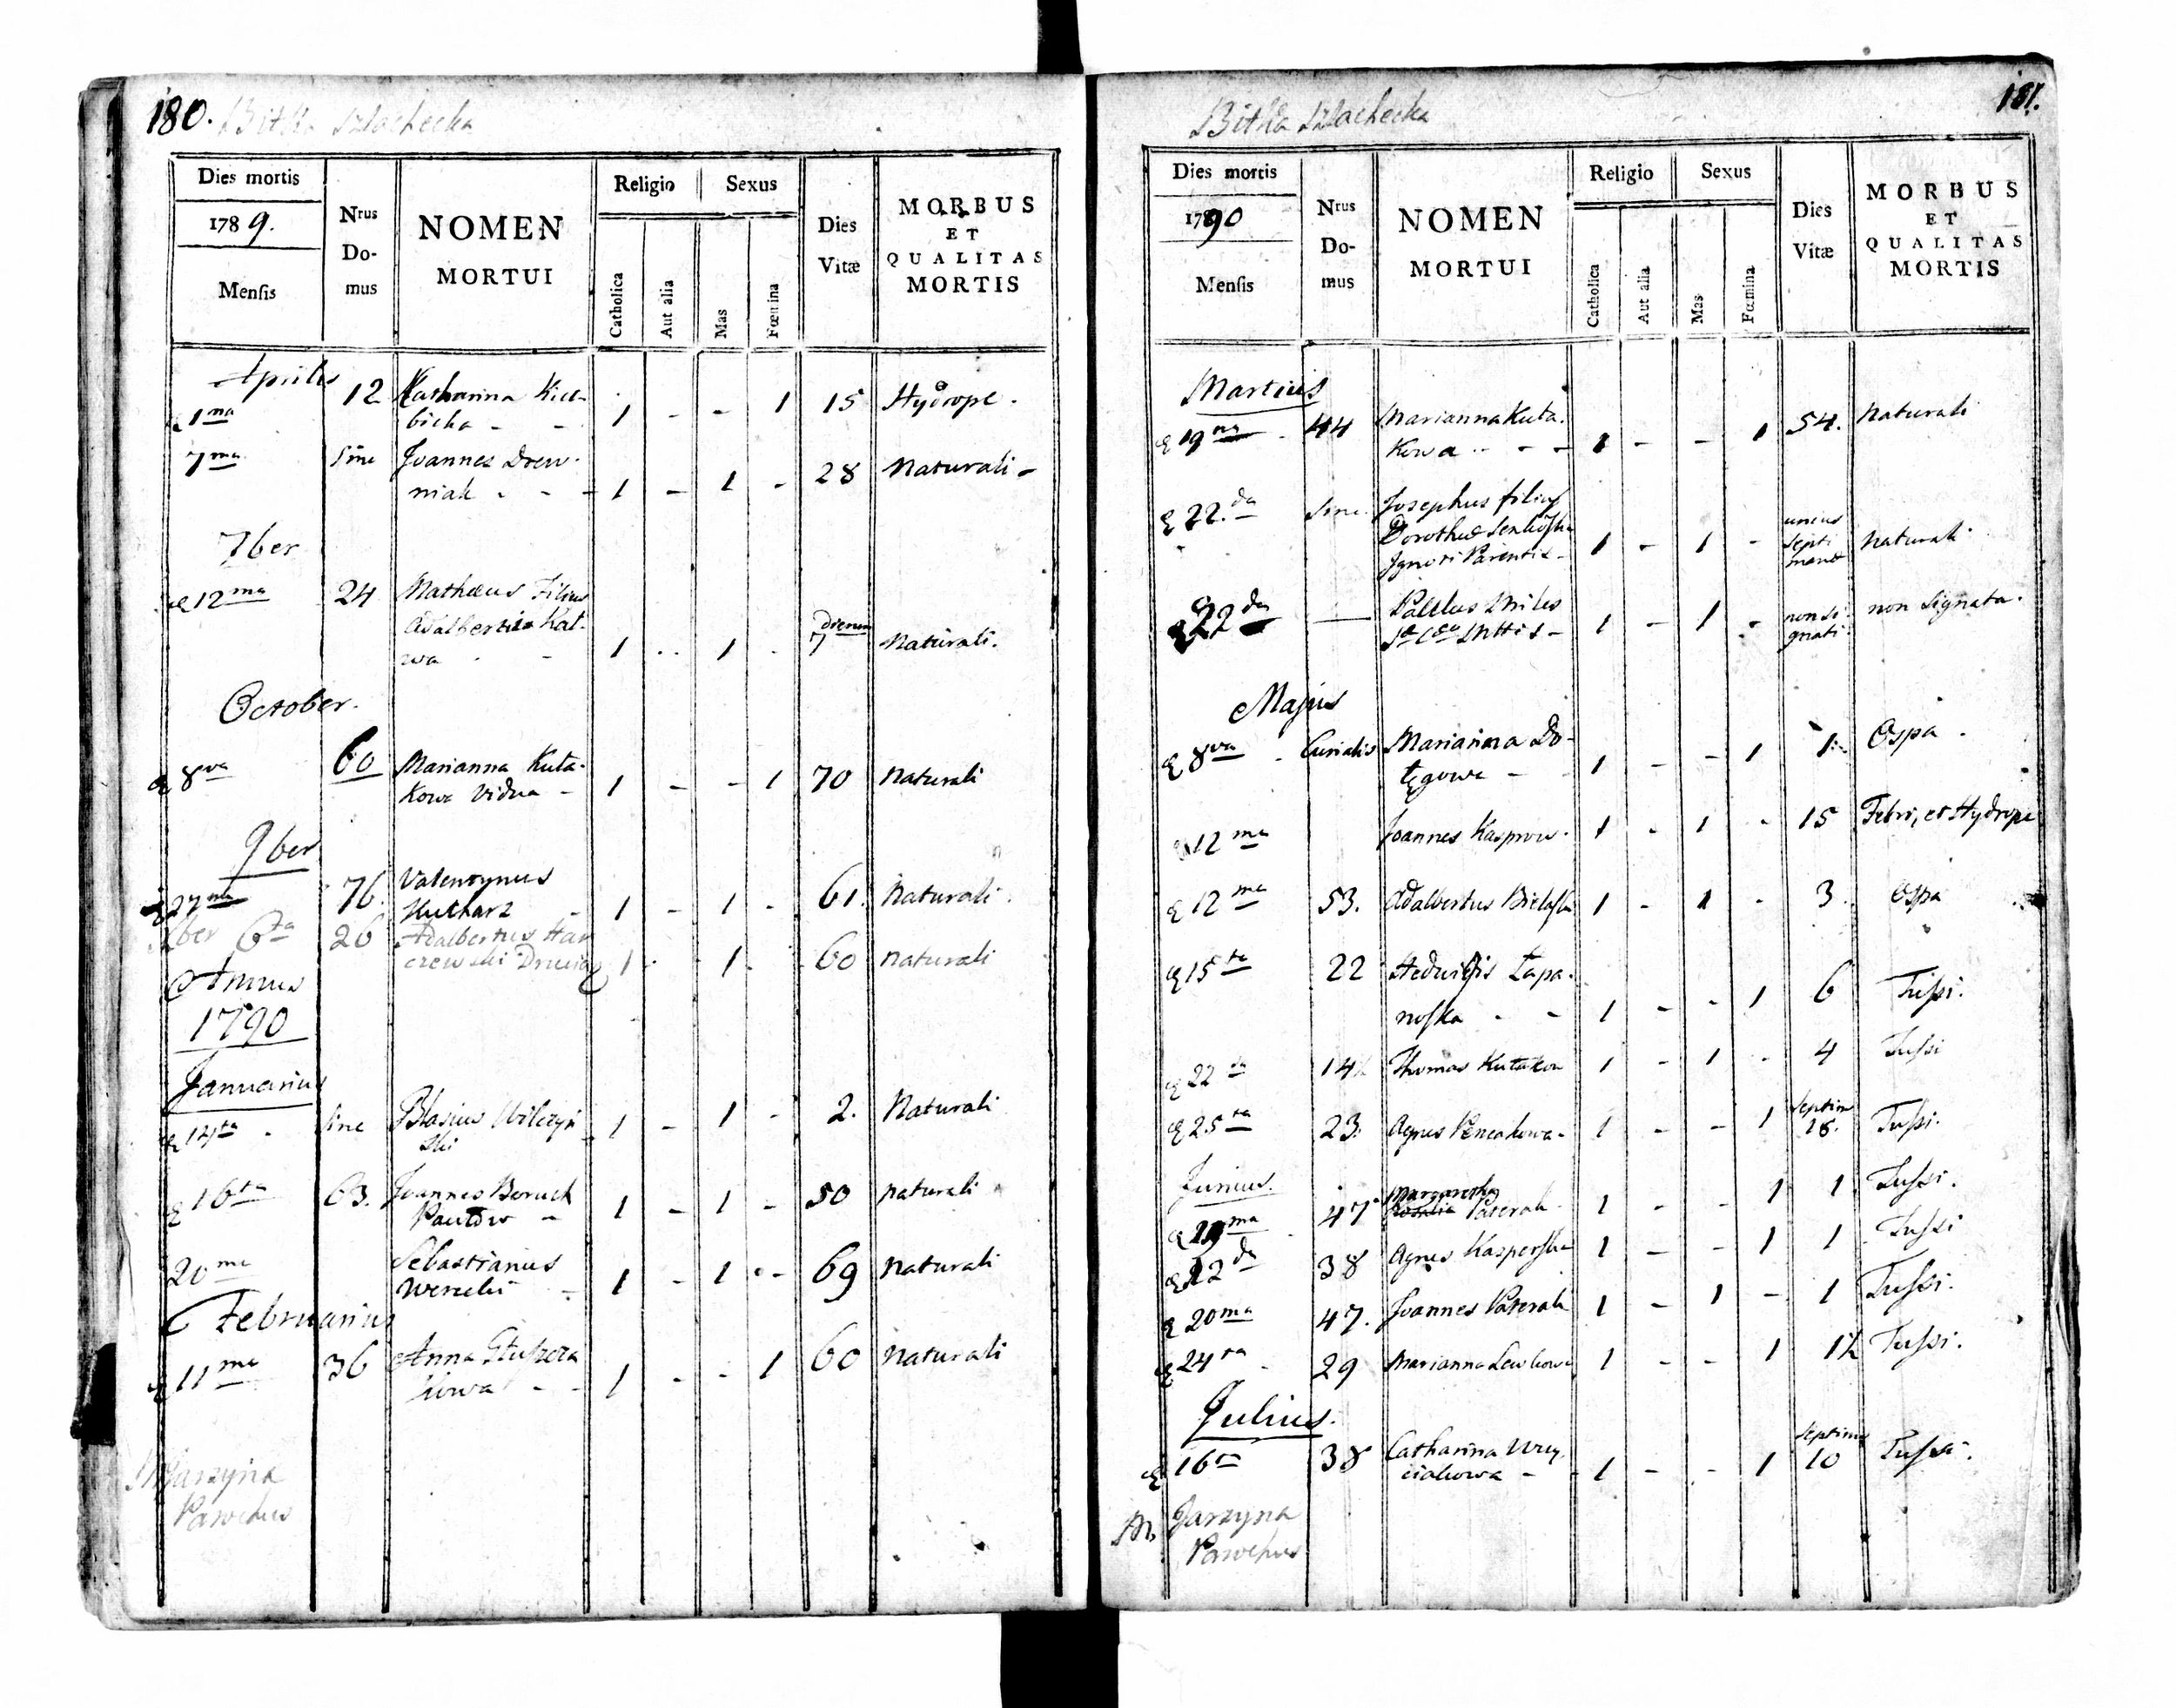 180. Bitka Szlachecka
Dies mortis
1789.
Mensis
Nrus
Do-
mus
NOMEN
MORTUI
Religio
Catholica
Aut alia
Sexus
Mas
Fœmina
Dies
Vitæ
MORBUS
ET
QUALITAS
MORTIS
Aprilis
1ma 12 Katharina Kieł-
bicka - - 1 - - 1 15 Hydrope.
7ma Sine Joannes Drew-
niak - - 1 - 1 - 28 Naturali -
7ber
12ma 24 Mathæus Filius
Adalberti Kat-
wa - 1 - 1 - Dierum 7 Naturali.
October.
8va 60 Marianna Kuta-
kowa Vidua - 1 - - 1 70 Naturali
9ber
27ma 76. Valentynus
Kucharz - 1 - 1 - 61. Naturali.
6ta 26 Adalbertus Har
czewski 1 - 1 60 naturali
Annus
1790
Januarius
14ta Sine Blasius Wilczyń
ski 1 - 1 - 2. Naturali
16ta 63. Joannes Boruch
- 1 - 1 - 50 naturali
20ma Sebastianus
- 1 - 1 - 69 naturali
Februarius
11ma 36 Anna
kowa - - 1 - - 1 60 naturali
Jarzyna
Parochus
Bitka Szlachecka 181.
Dies mortis
1790
Mensis
Nrus
Do-
mus
NOMEN
MORTUI
Religio
Catholica
Aut alia
Sexus
Mas
Fœmina
Dies
Vitæ
MORBUS
ET
QUALITAS
MORTIS
Martius
19na 44 Marianna Kuta-
kowa - - - 1 - - 1 54. Naturali
22da Sine Josephus filius
Dorotheæ
Ignoti Parentis - 1 - 1 - unius septi manæ naturali
22da — Miles
1 - 1 - non si- gnati non Signata.
Majus
8va Curialis Marianna Do-
tęgowa - 1 - - 1 1 Ospa.
12ma Joannes Kasprow. 1 - 1 - 15 Febri, et Hydrope
12ma 53. Adalbertus Bielaska 1 - 1 - 3. Ospa
15ta 22 Hedwigis Łapa-
noska - - 1 - - 1 6 Tussi.
22da 14 Thomas Kutakow 1 - 1 - 4 Tussi
25ta 23. Agnes Pencakowa - 1 - - 1 Septim 18. Tussi.
Junius.
19ma 47 Margaretha
Paterak 1 - - 1 1 Tussi.
22da 38 Agnes Kasperska 1 - - 1 1 Tussi
20ma 47. Joannes Paterak 1 - 1 - 1 Tussi.
24ta 29 Marianna Lewkowa 1 - - 1 1½ Tussi.
Julius.
16ta 38 Catharina
- 1 - - 1 Septim 10 Tussi.
M. Jarzyna
Parochus